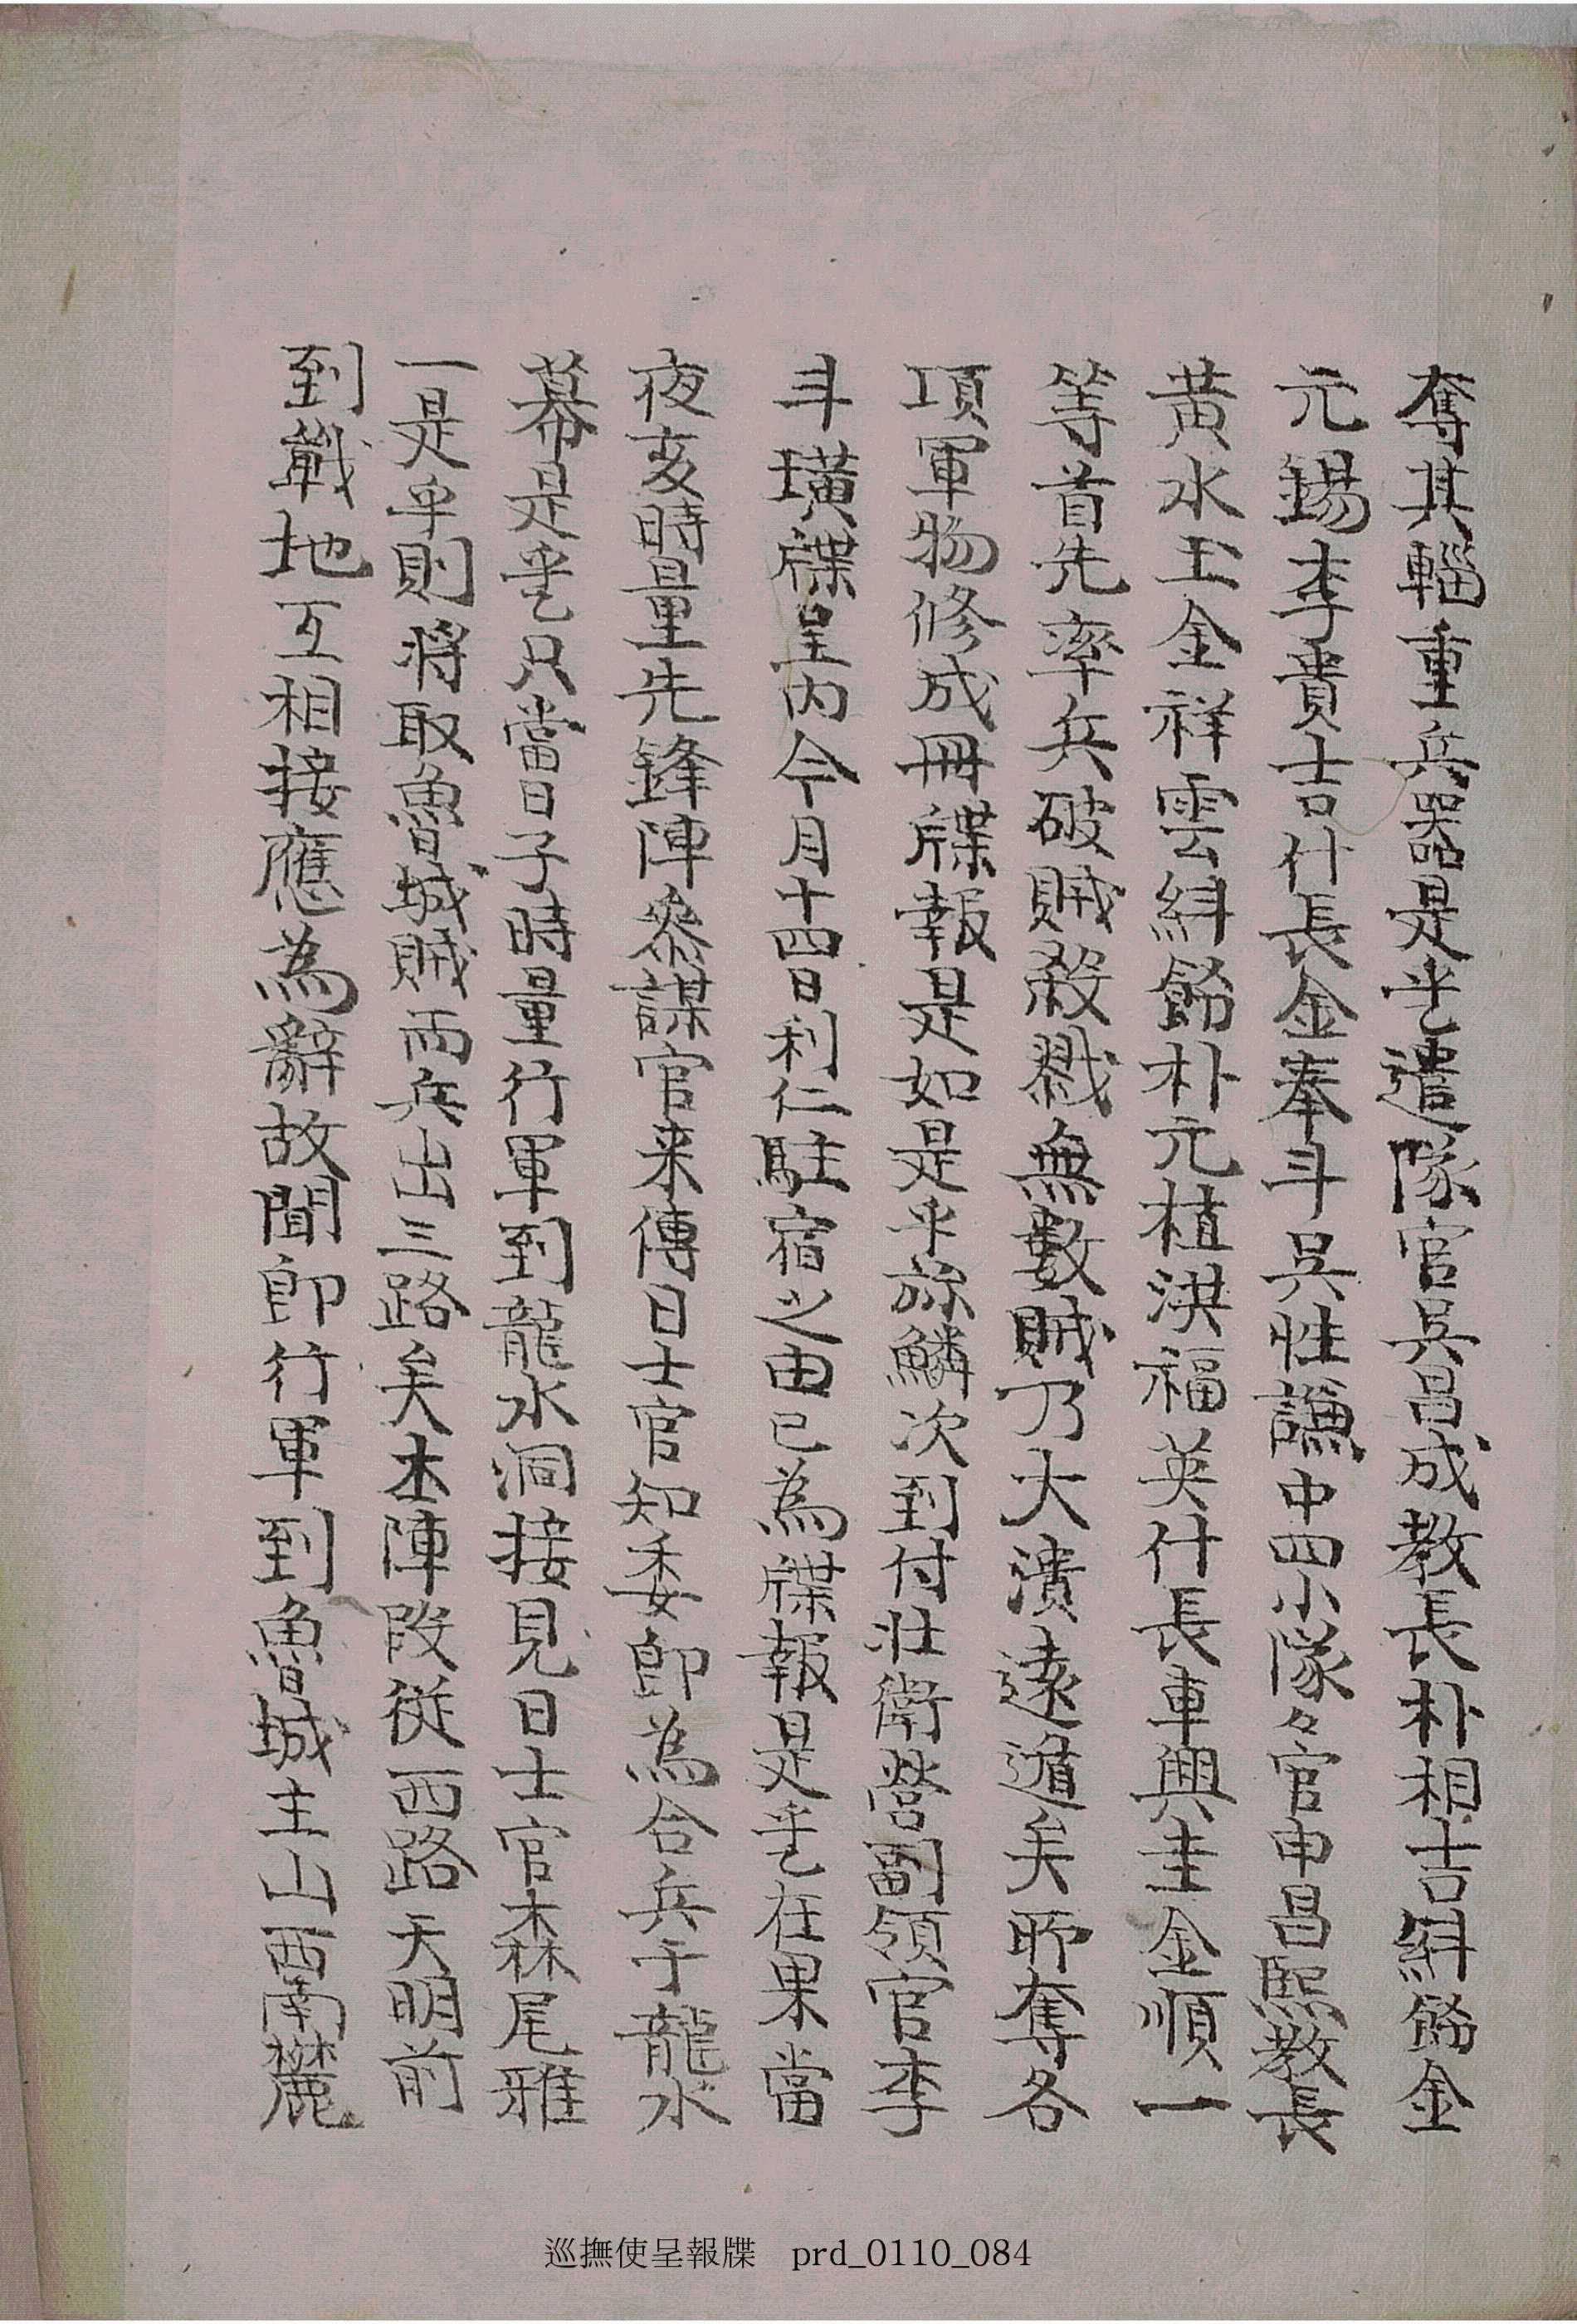 奪其輜重兵器是乎乙遣隊官吳昌成教長朴相吉紏飭金
元錫李貴吉什長金奉斗吳性謙中四小隊々官申昌熙教長
黃水玉金祥雲紏飭朴元植洪福英什長車興圭金順一
等首先率兵破賊殺戮無數賊乃大潰遠遁矣所奪各
項軍物修成冊牒報是如是乎旀鱗次到付壯衛營副領官李
斗璜牒呈內今月十四日利仁駐宿之由已爲牒報是乎乙在果當
夜亥時量先鋒陣叅謀官来傳日士官知委卽爲合兵于龍水
幕是乎乙只當日子時量行軍到龍水洞接見日士官森尾雅
一是乎則將取魯城賊而兵出三路矣本陣段從西路天明前
到戰地互相接應為辭故聞卽行軍到魯城主山西南麓
巡撫使呈報牒 prd_0110_084